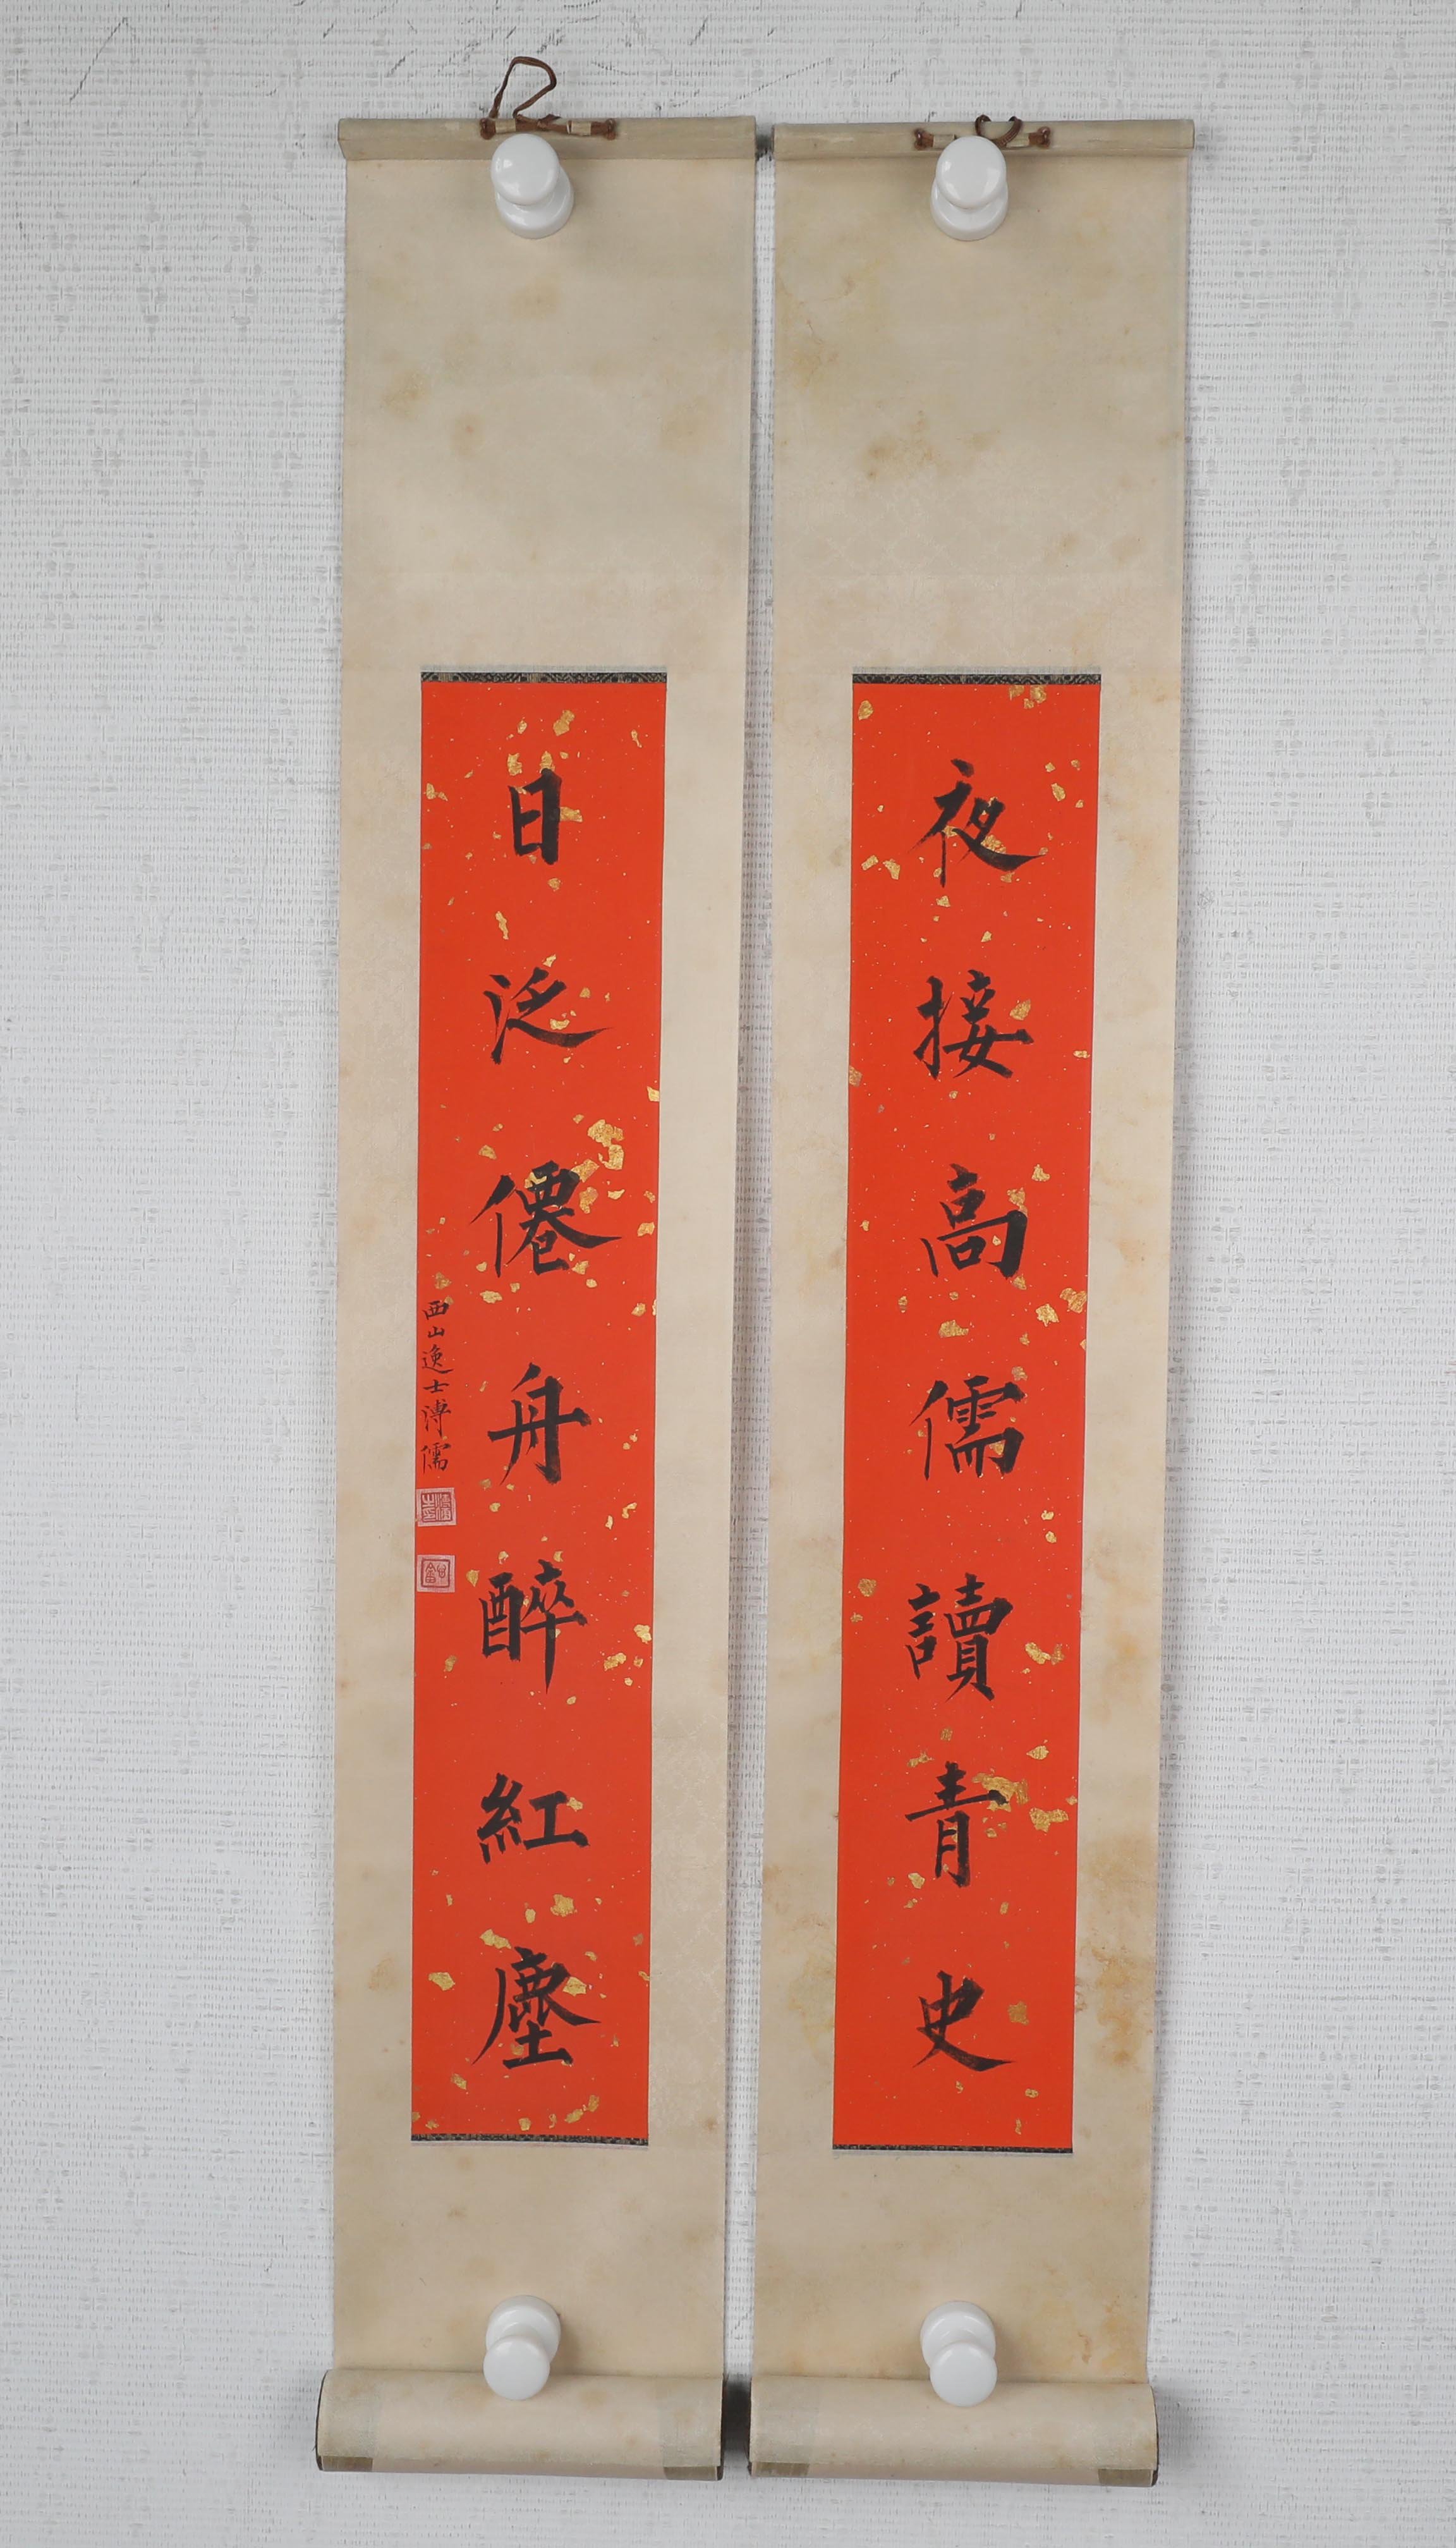 夜接高儒讀青史
日泛僊舟醉紅塵
西山逸士溥儒